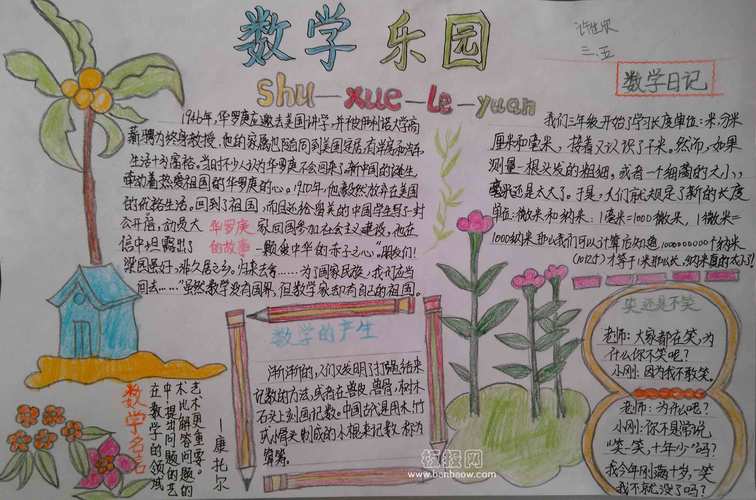 数学乐园
shu-xue-le-yuan
三.五
数学日记
1946年,华罗庚应邀去美国讲学,并被伊利诺大学高
薪聘为终身教授,他的家属也随同到美国定居,有洋房和汽车,
生活十分富裕。当时不少人认为华罗庚不会回来了。新中国的诞生,
牵动着热爱祖国的华罗庚的心。1950年,他毅然放弃在美国
的优裕生活。回到了祖国,而且还给留美的中国学生写了一封
公开信,动员大家回国参加社会主义建设。他在
信中坦露出了一颗爱中华的赤子之心"朋友们!
梁园虽好,非久居之乡。归来去兮……为了国家民族,我们应当
回去……"虽然数学没有国界,但数学家却有自己的祖国。
华罗庚
的故事
我们三年级开始了学习长度单位:米、分米
厘米和毫米,接着又认识了千米。然而,如果
测量一根头发的粗细,或者一个细菌的大小,
毫米还是太大了。于是,人们就规定了新的长度
单位:微米和纳米:1毫米=1000微米,1微米=
1000纳米那么我们可以计算后知道,1000000000个纳米
才等于1米那么长。纳米真的太小了!
数学的产生
渐渐的,人们又发明了打绳结来
记数的方法,或者在兽皮、兽骨、树木、
石头上刻画记数。中国古代是用木、竹
或骨头制成的小棍来记数,称为
算筹。
笑还是不笑
老师:大家都在笑,为
什么你不笑呢?
小刚:因为我不敢笑。
老师:为什么呢?
小刚:你不是常说
"笑一笑,十年少"吗?
我今年刚满十岁,一笑
我不就没了吗?
数学名言
在数学的领域
中,提出问题的艺
术比解答问题的
艺术更重要。
—康托尔
板报网
www.banbaow.com